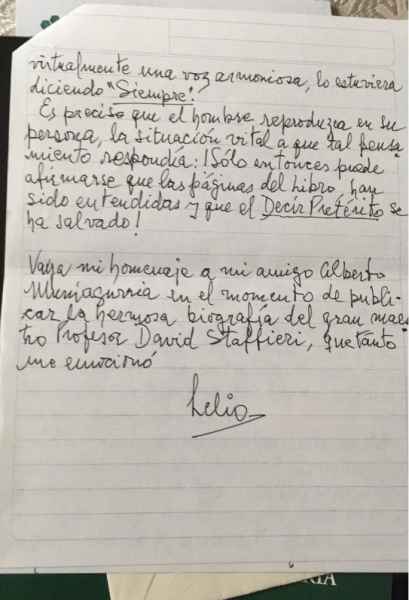 virtualmente una voz armoniosa, lo estuviera
diciendo "Siempre".
Es preciso que el hombre reproduzca en su
persona, la situación vital a que tal pensa
miento respondía: ¡Sólo entonces puede
afirmarse que las páginas del libro, han
sido entendidas y que el Decir Pretérito se
ha salvado!
Vaya mi homenaje a mi amigo Alberto
Muniagurria en el momento de publi-
car la hermosa biografía del gran maes
tro Profesor David Staffieri, que tanto
me emocionó
Lelio